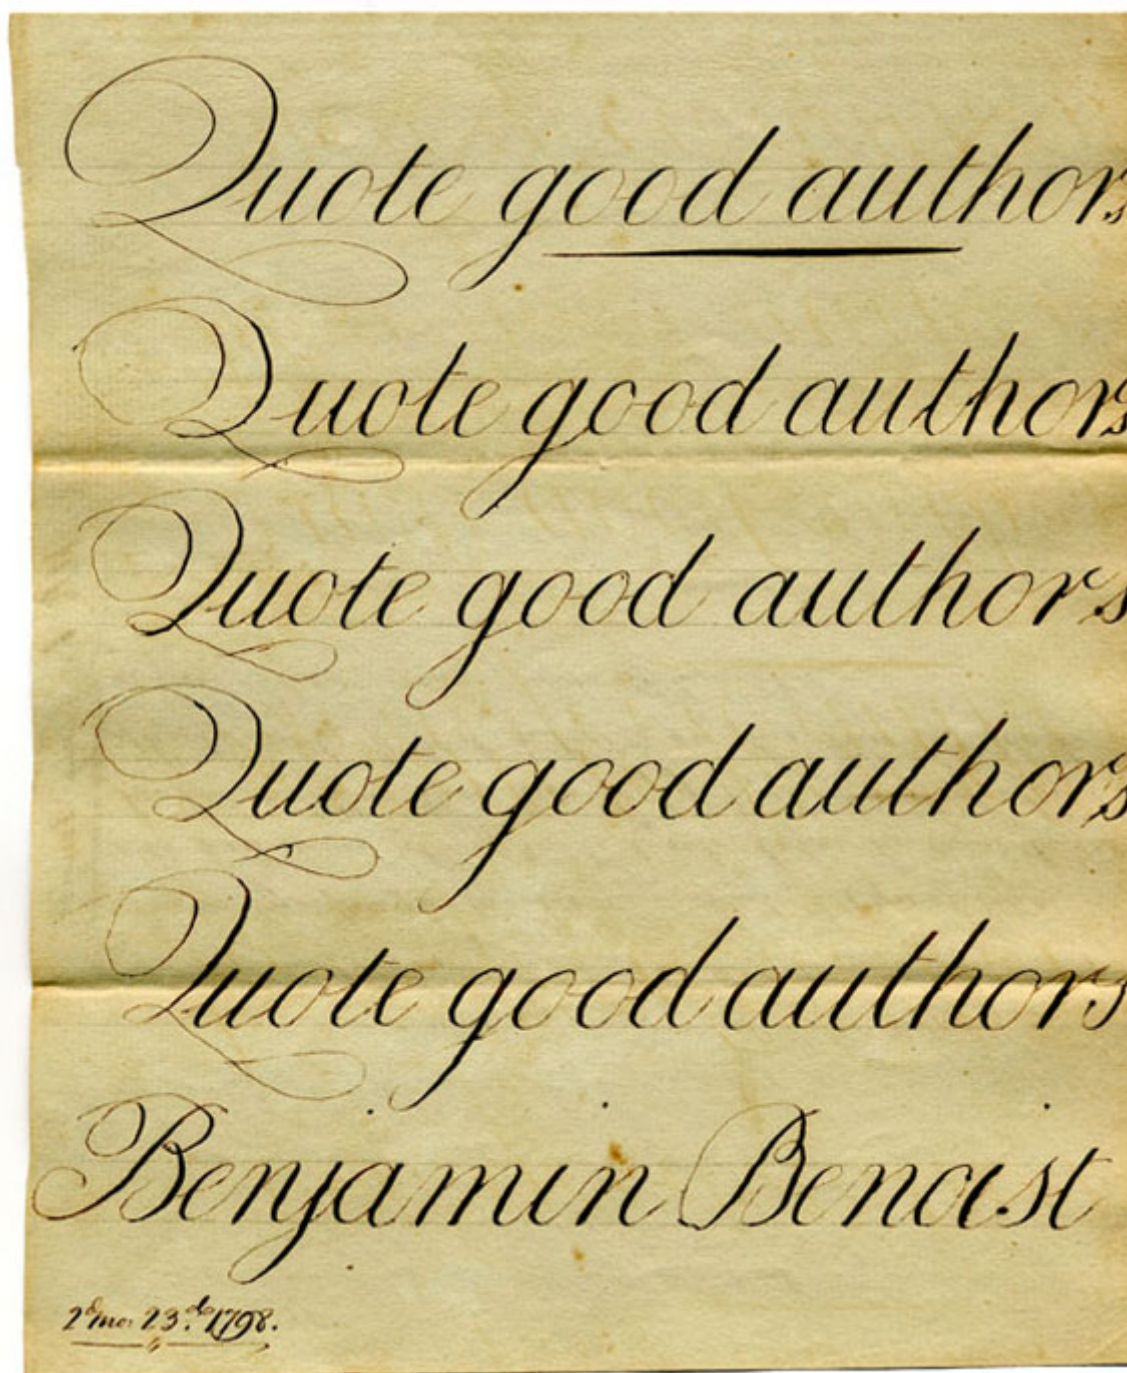 Quote good authors
Quote good authors
Quote good authors
Quote good authors
Quote good authors
Benjamin Benoist
2d mo. 23.d 1798.